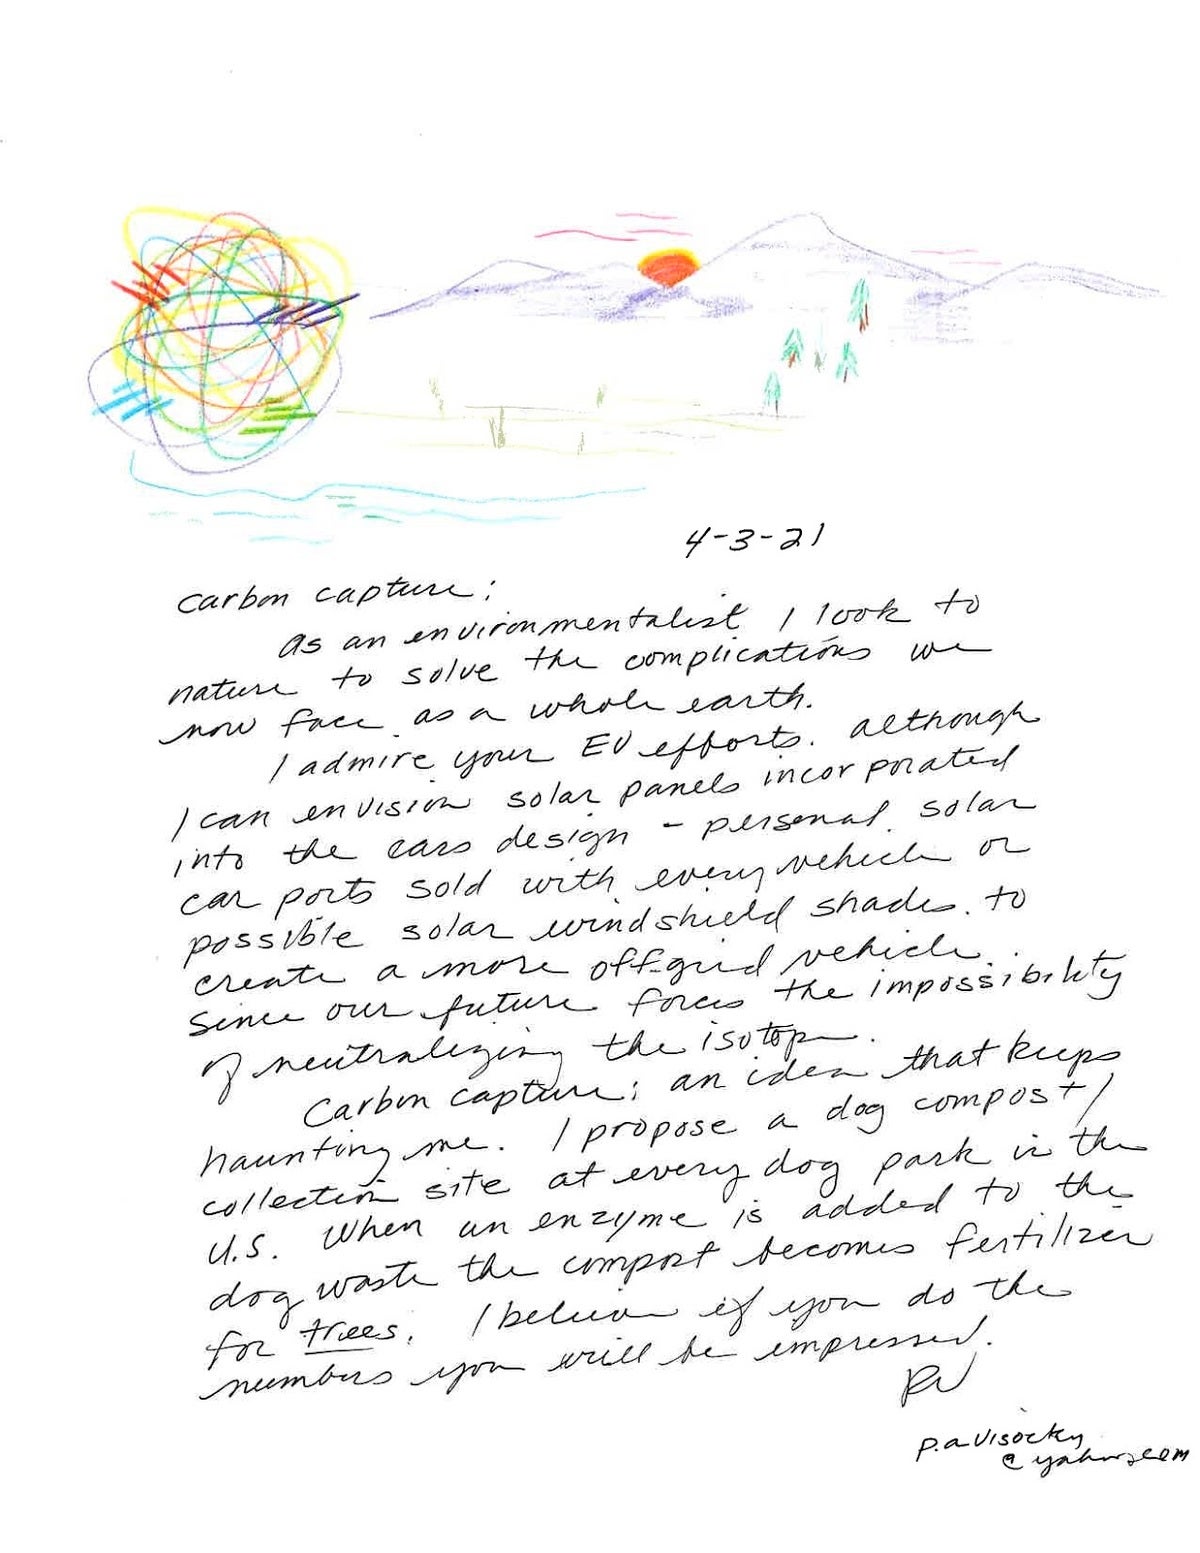 4-3-21
Carbon capture:
As an environmentalist I look to
nature to solve the complications we
now face as a whole earth.
I admire your EV efforts. Although
I can envision solar panels incorporated
into the cars design - personal solar
car ports sold with every vehicle or
possible solar windshield shades. to
create a more off-grid vehicle.
Since our future forces the impossibility
of neutralizing the isotope.
Carbon capture: an idea that keeps
haunting me. I propose a dog compost/
collection site at every dog park in the
U.S. When an enzyme is added to the
dog waste the compost becomes fertilizer
for trees. I believe if you do the
numbers you will be impressed.
PV
p.a.visocky
@yahoo.com